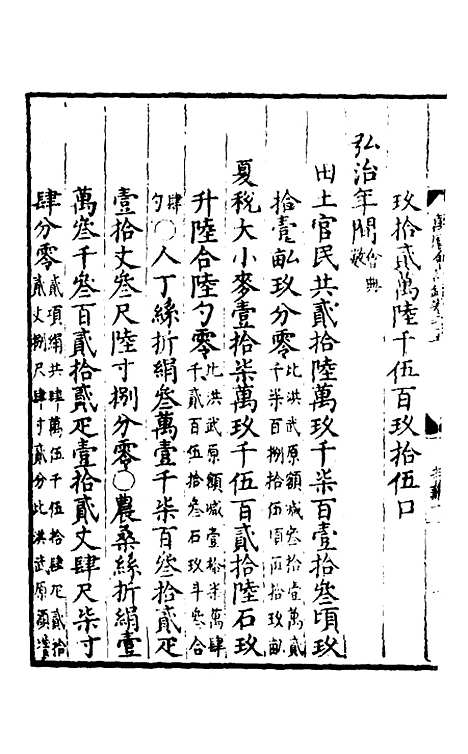 玖拾貳萬陸千伍百玖拾伍口
弘治年間會典數
田土官民共貳拾陸萬玖千柒百壹拾叄頃玖
拾壹畝玖分零比洪武原額減叄拾壹萬貳
千柒百捌拾伍頃
夏稅大小麥壹拾柒萬玖千伍百貳拾陸石玖
升陸合陸勺零比洪武原額減壹拾柒萬肆
千貳百伍拾叄石玖斗叄合
肆勺○人丁絲折絹叄萬壹千柒百叄拾貳疋
壹拾丈叄尺陸寸捌分零○農桑絲折絹壹
萬叄千叄百貳拾貳疋壹拾貳丈肆尺柒寸
肆分零貳項絹共肆萬伍千伍拾肆疋貳拾
貳丈捌尺肆寸貳分比洪武原額增